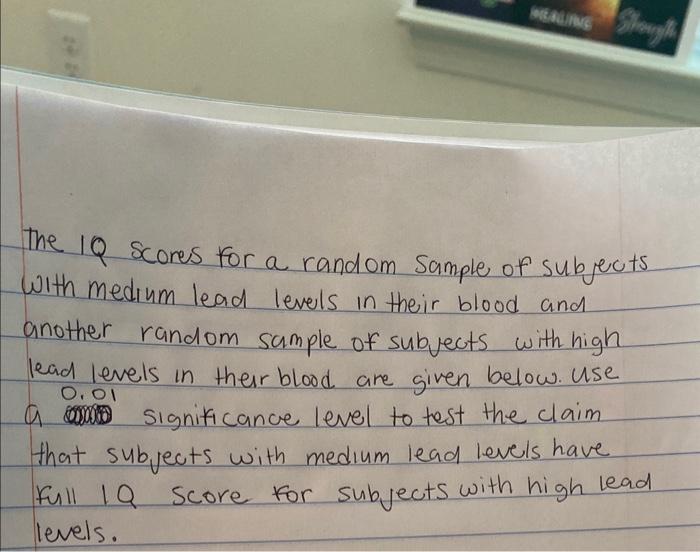 HEALING Strength
The IQ scores for a random sample of subjects
with medium lead levels in their blood and
another random sample of subjects with high
lead levels in their blood are given below. Use
0.01
a significance level to test the claim
that subjects with medium lead levels have
full IQ score for subjects with high lead
levels.